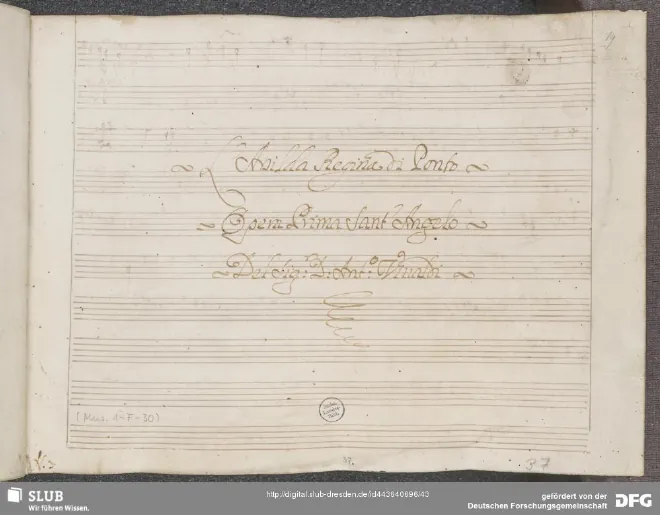 19
L'Arsilla Regina di Ponto
Opera Prima Sant' Angelo
Del Sig:r D: Ant:o Vivaldi
(Mus. 1-F-30)
37.
37
SLUB
Wir führen Wissen.
http://digital.slub-dresden.de/id443640696/43
gefördert von der
Deutschen Forschungsgemeinschaft
DFG